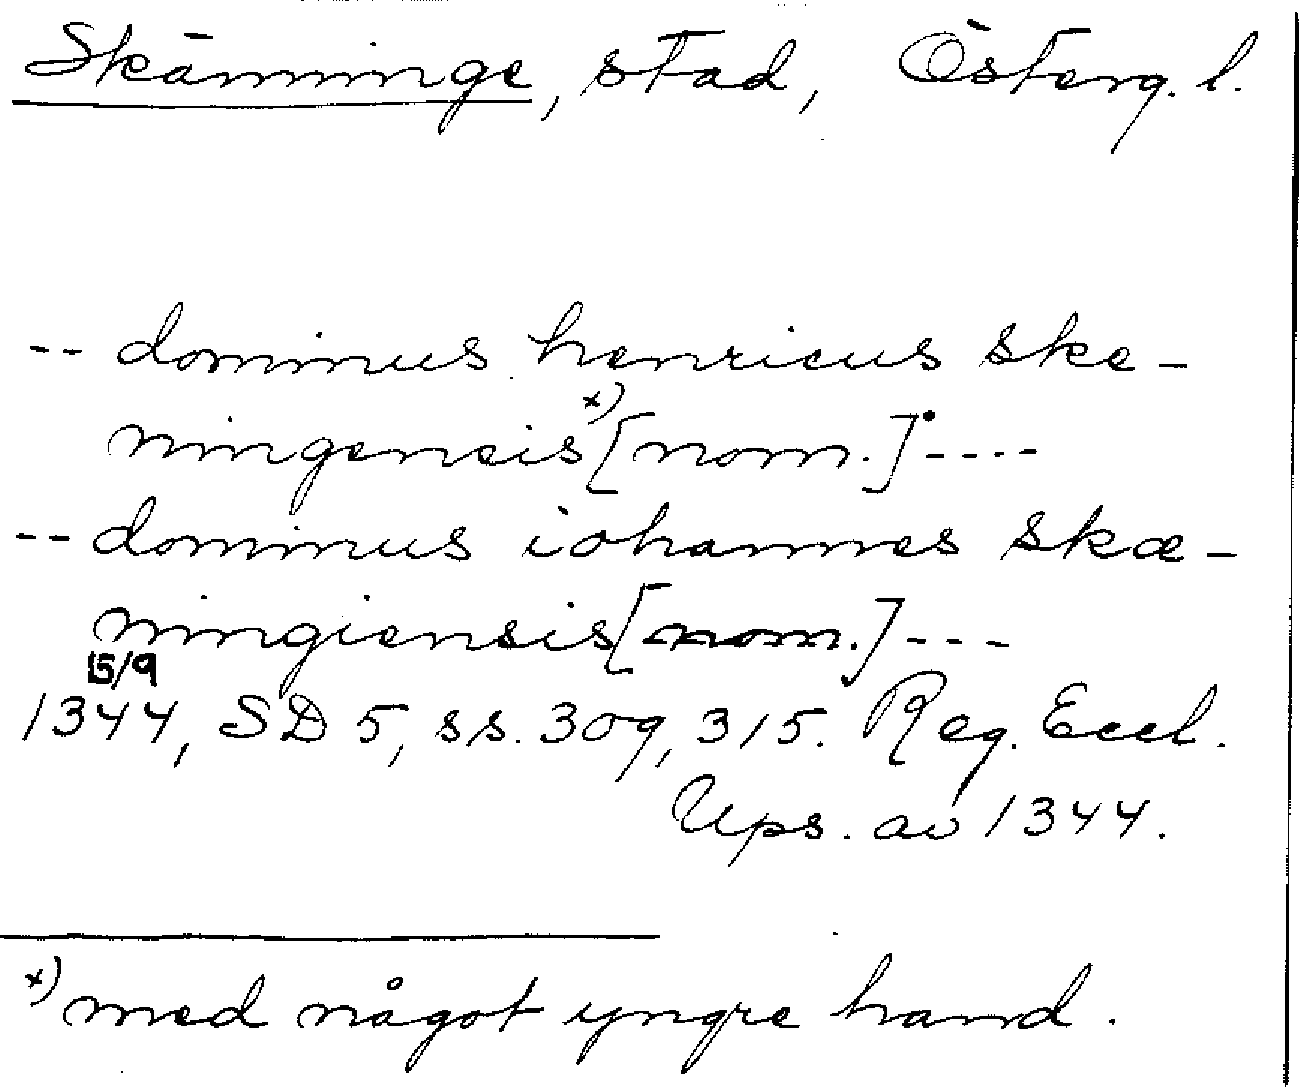 Skänninge, stad, Österg. l.
-- dominus henricus ske-
ningensis x) [nom.] ----
-- dominus iohannes skæ-
ningiensis [nom.] ---
15/9
1344, SD 5, ss. 309, 315. Reg. Eccl.
Ups. av 1344.
x) med något yngre hand.